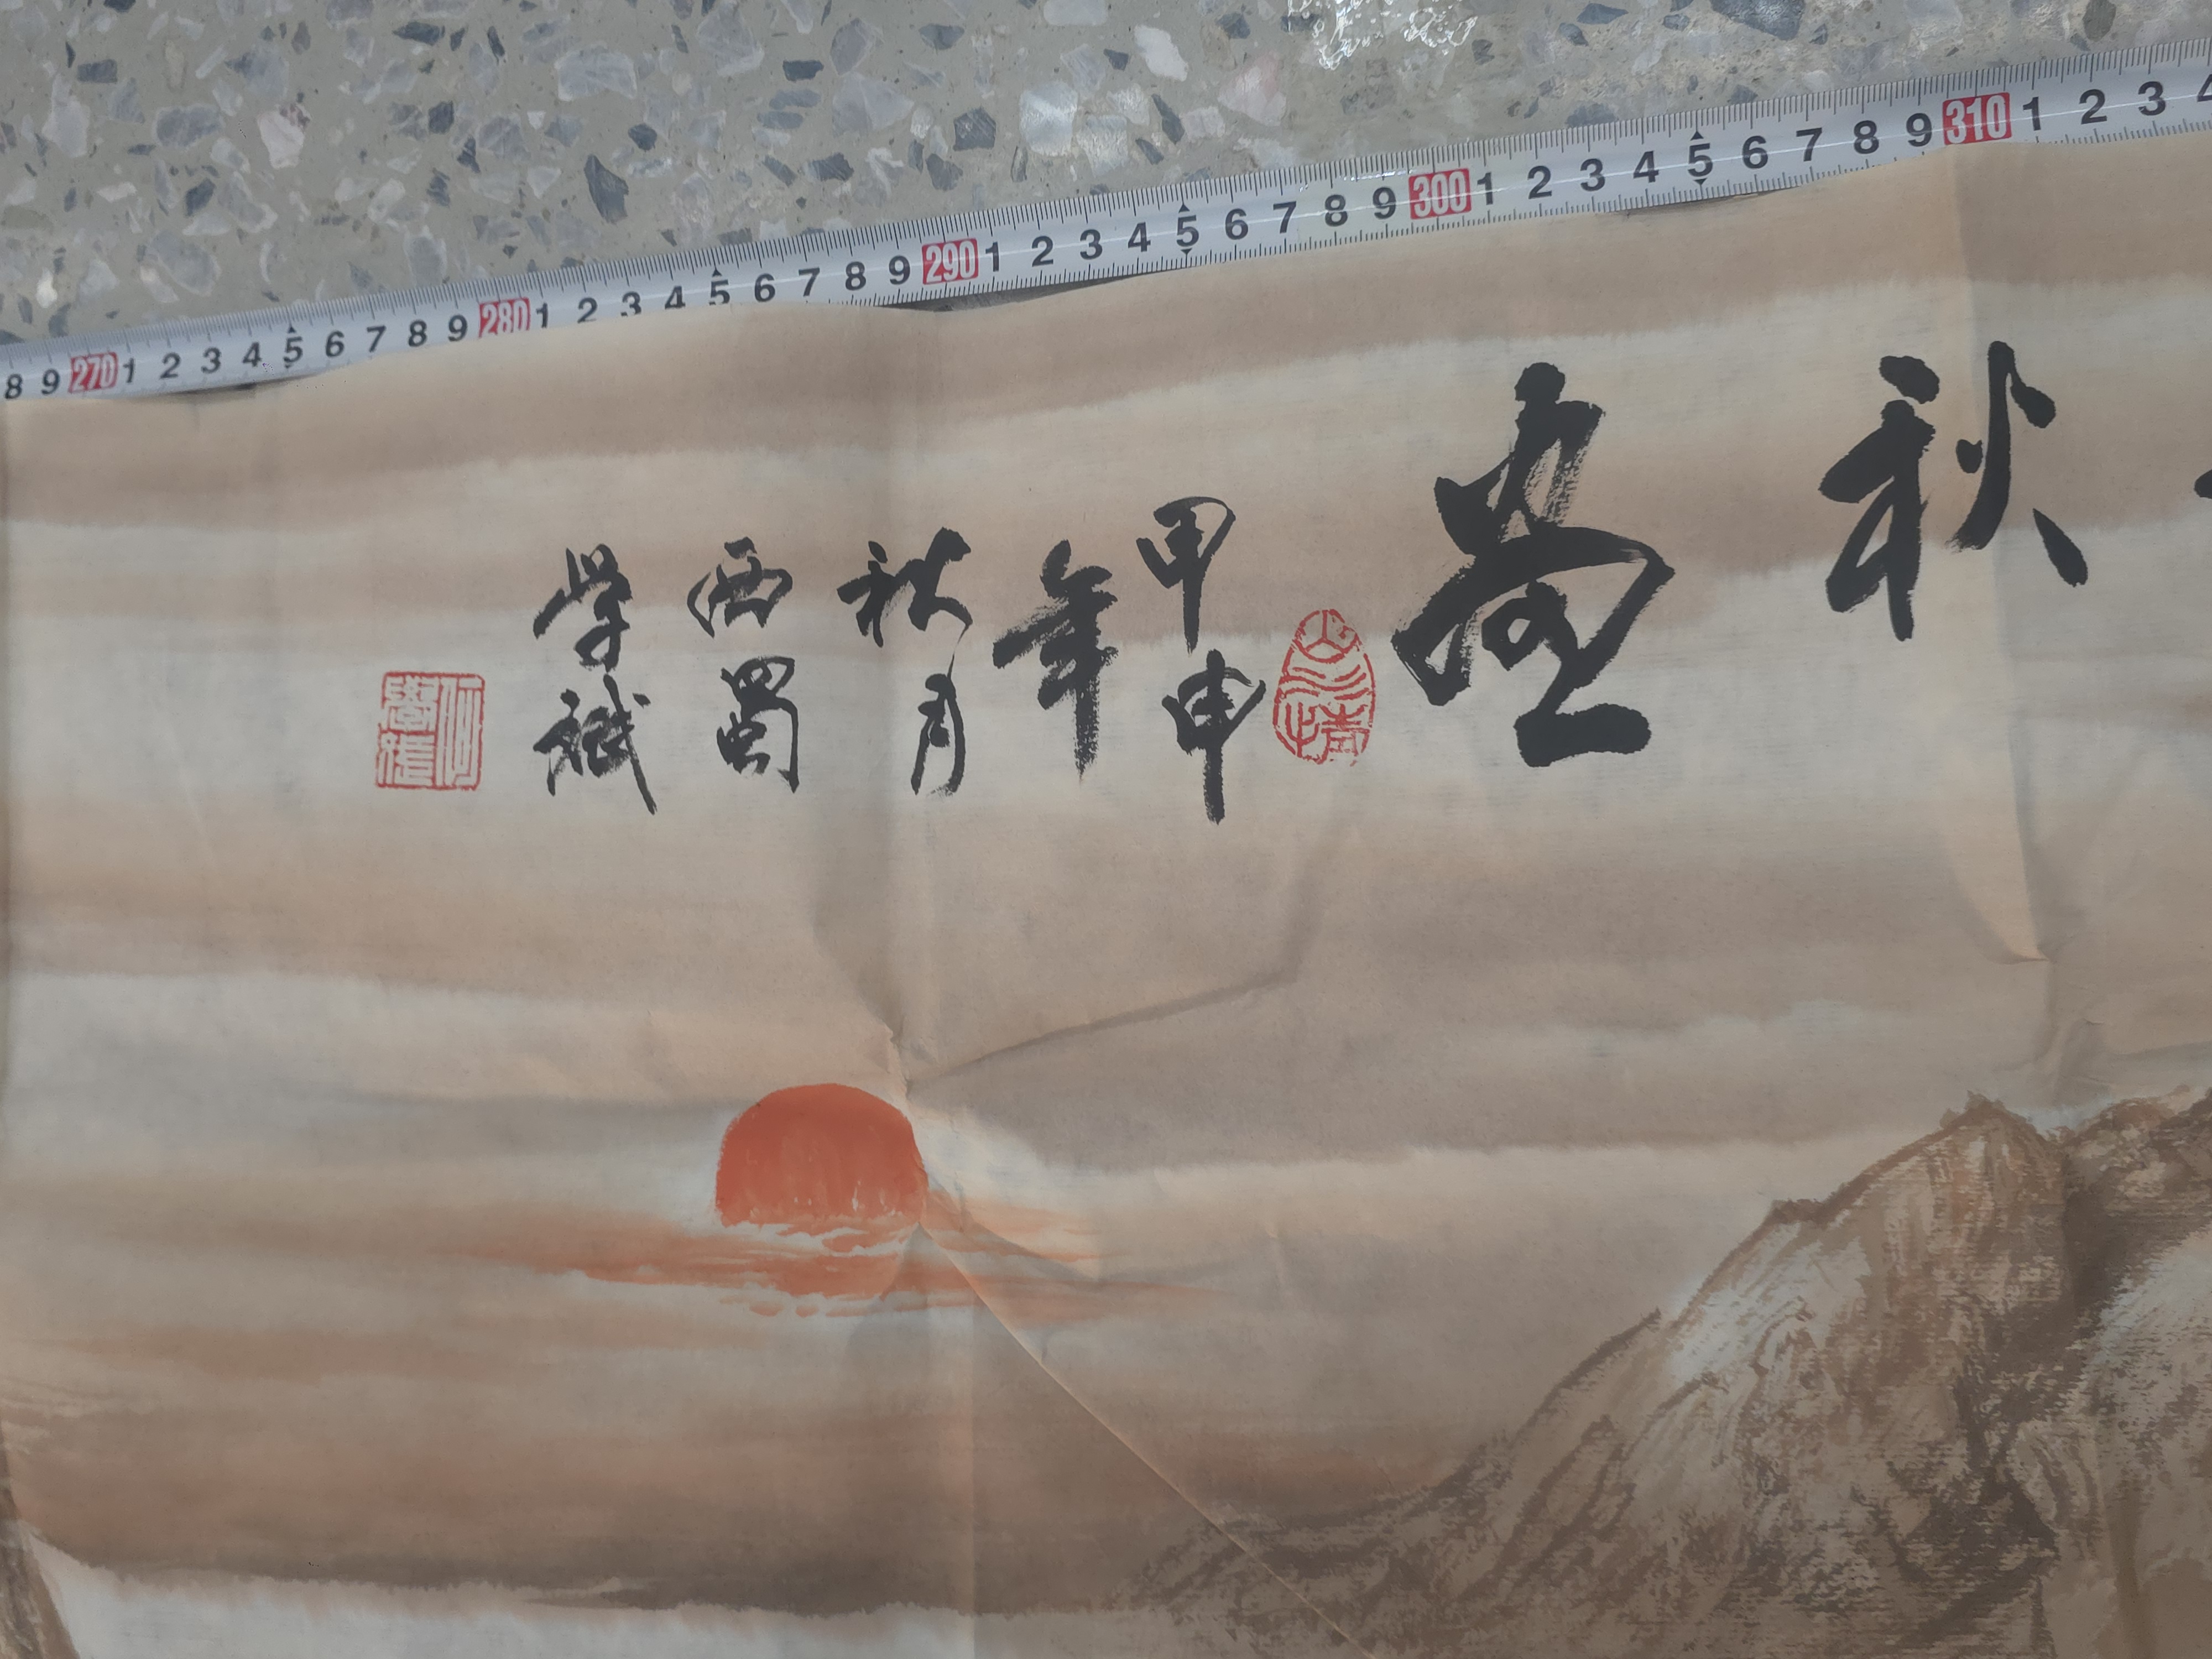 8 9 270 1 2 3 4 5 6 7 8 9 280 1 2 3 4 5 6 7 8 9 290 1 2 3 4 5 6 7 8 9 300 1 2 3 4 5 6 7 8 9 310 1 2 3 4
秋畫
甲申
年
秋月
西蜀
学斌
山水情
何學斌